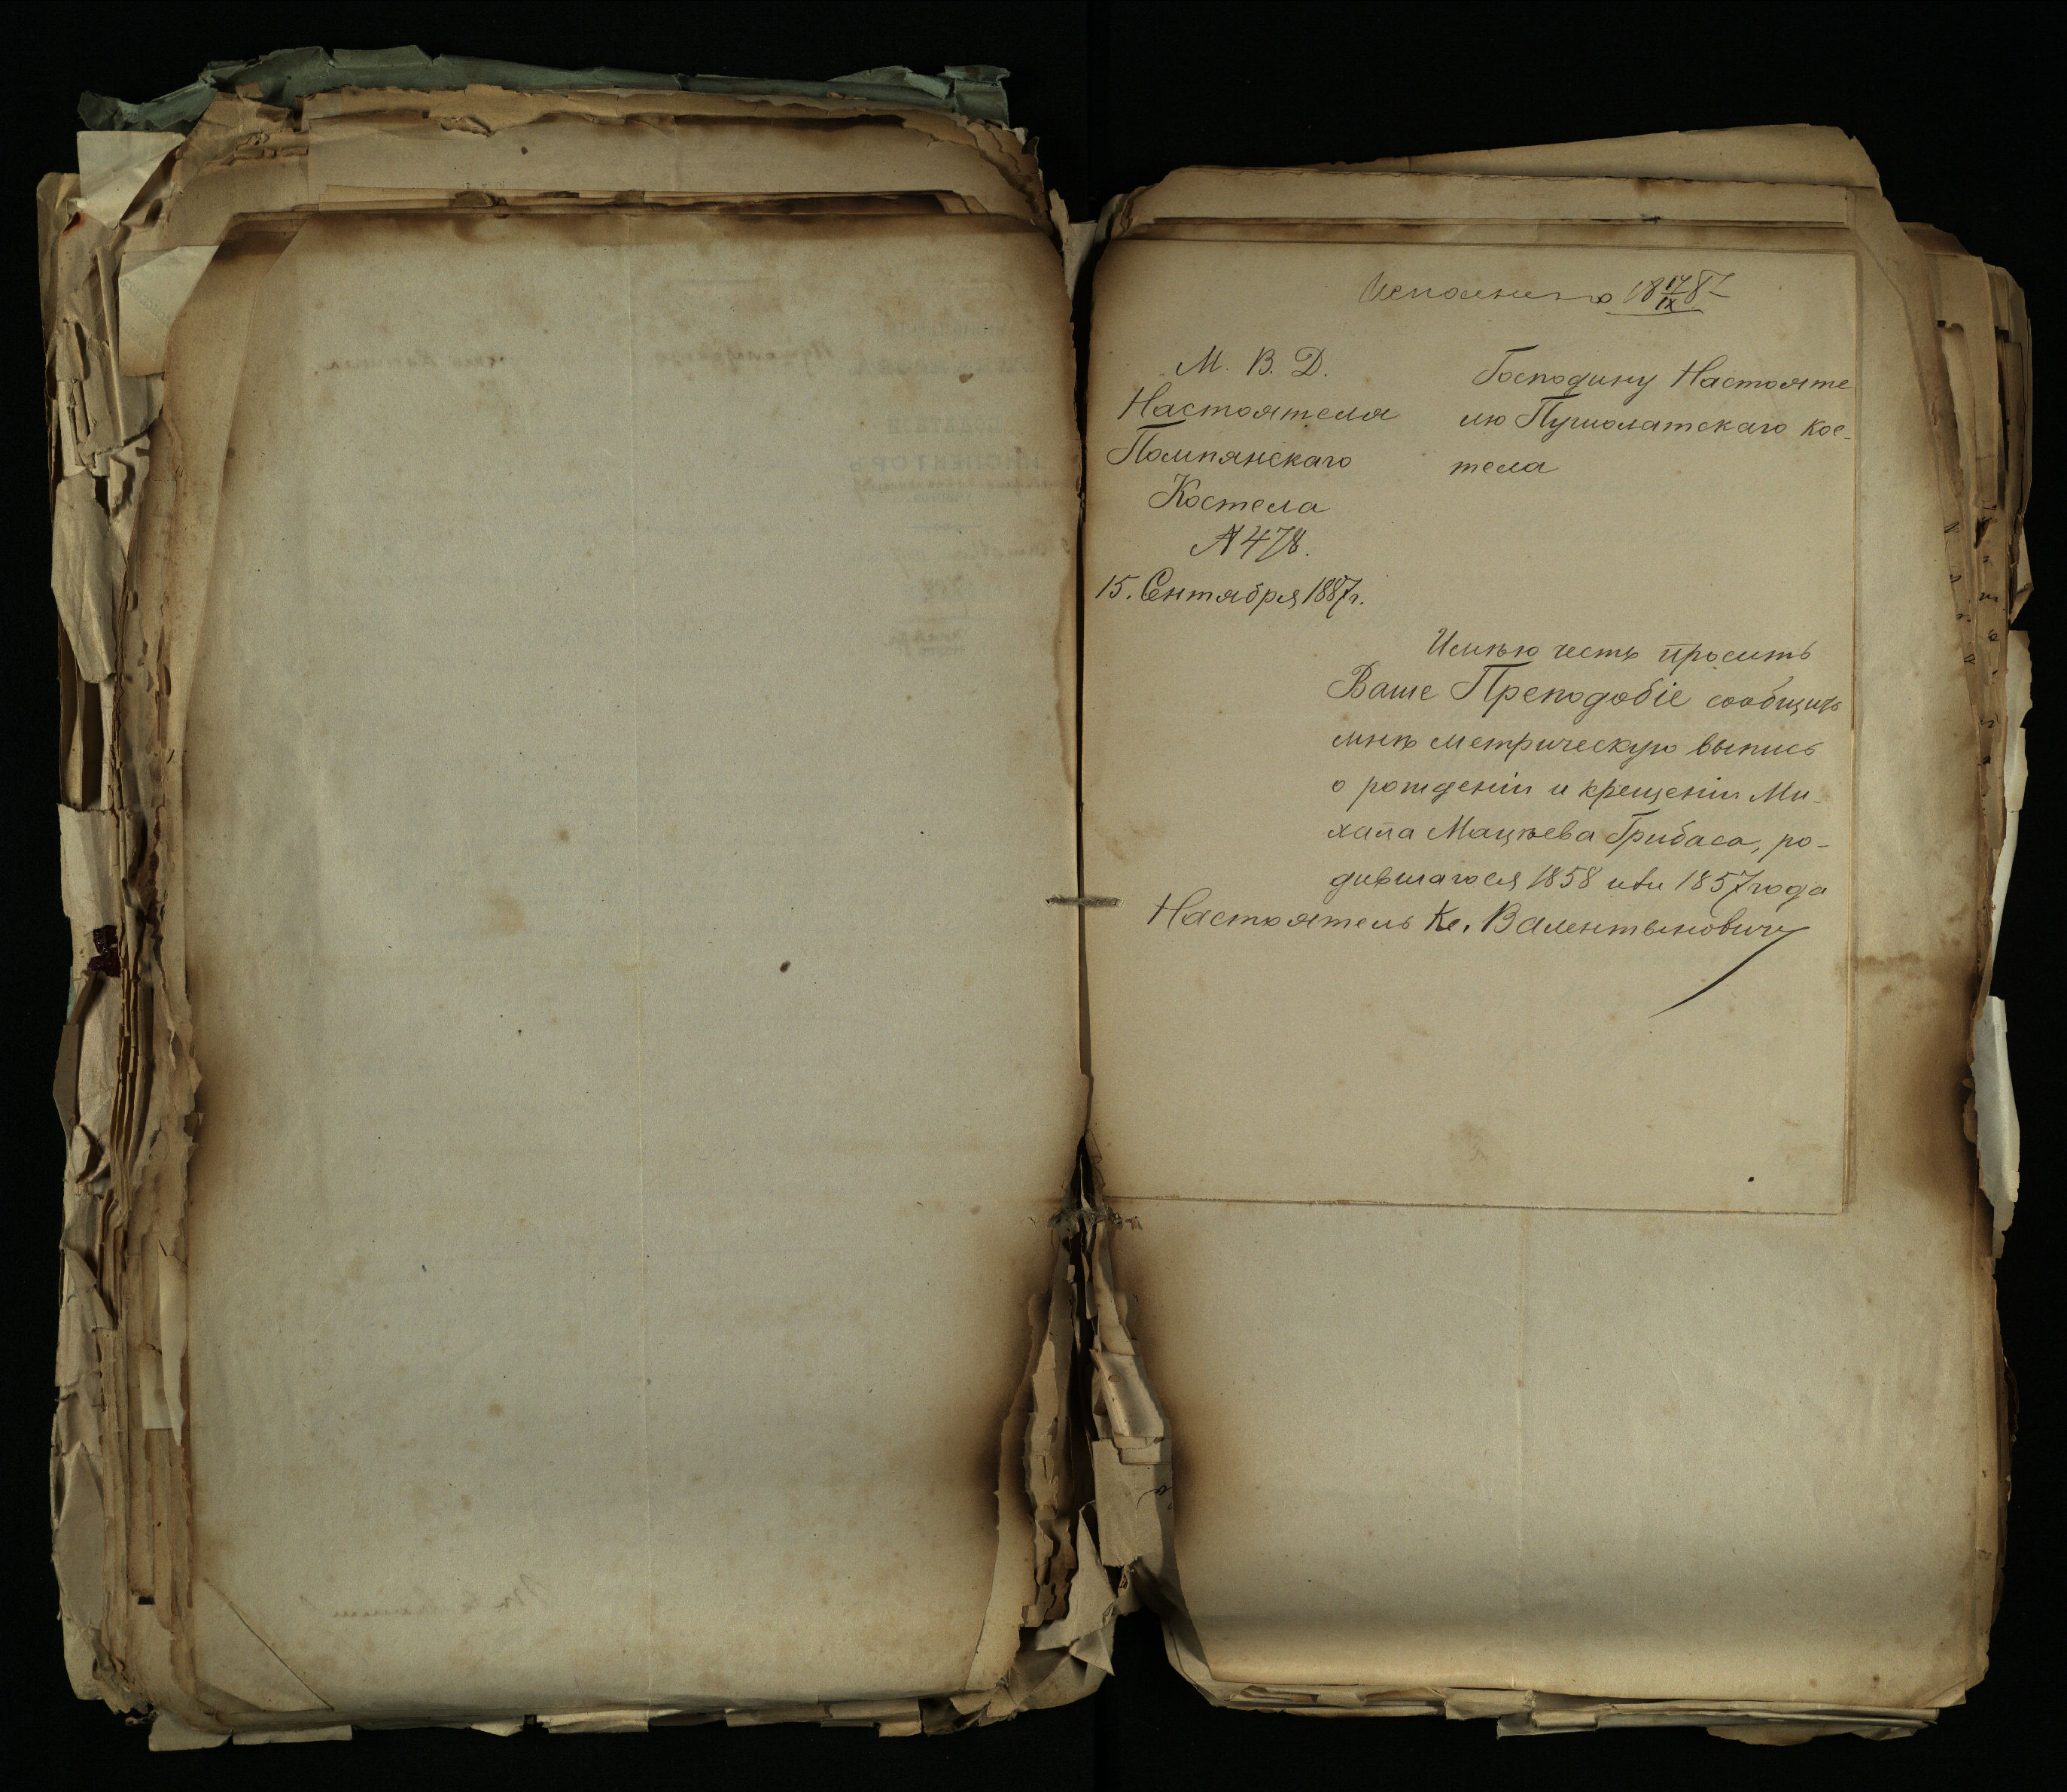 Исполнено 18 17/IX 87
М. В. Д.
Настоятеля
Помпянскаго
Костела
№ 478.
15. Сентября 1887 г.
Господину Настояте
лю Пушолатскаго Кос-
тела
Имѣю честь просить
Ваше Преподобіе сообщить
мнѣ метрическую выпись
о рожденіи и крещеніи Ми-
хаила Мацѣева Грибаса, ро-
дившагося 1858 или 1857 года
Настоятель Кс. Валентынович